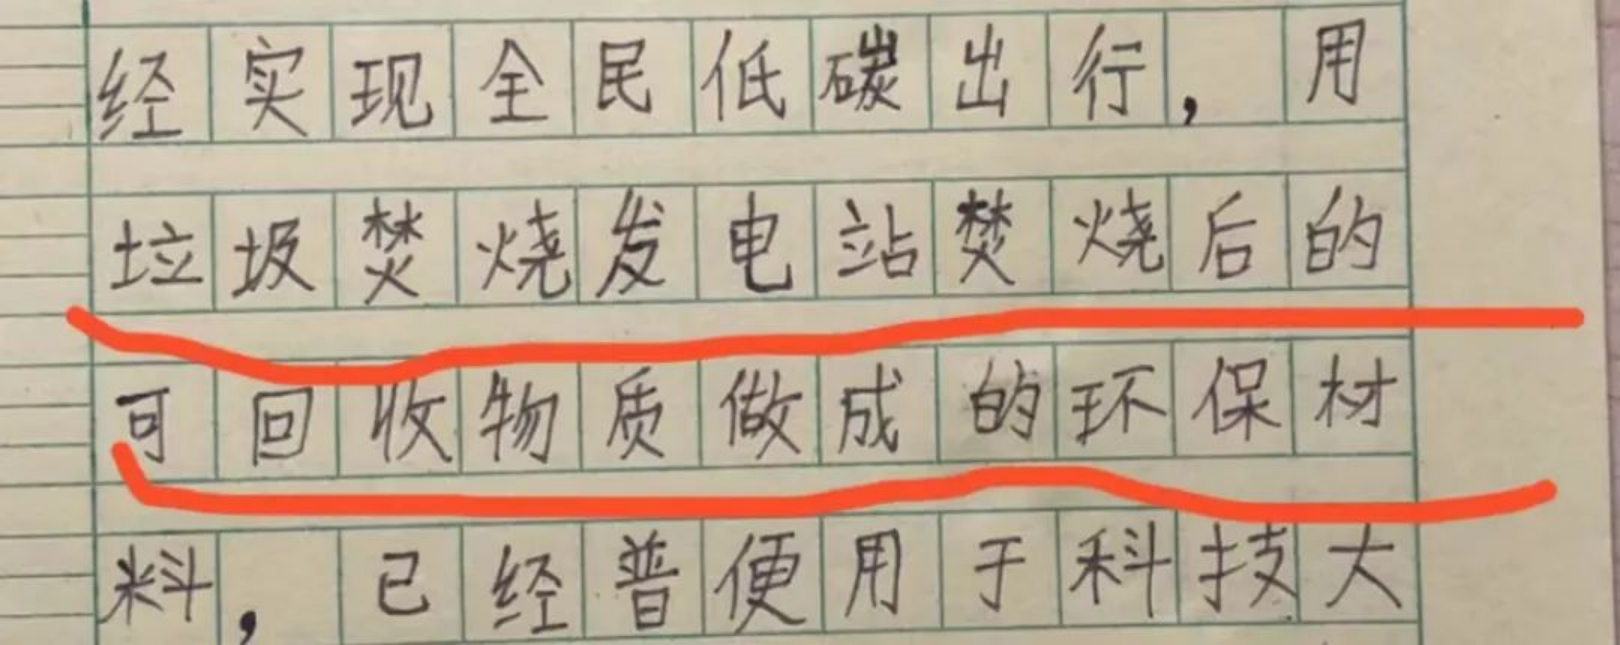 经实现全民低碳出行，用
垃圾焚烧发电站焚烧后的
可回收物质做成的环保材
料，已经普便用于科技大